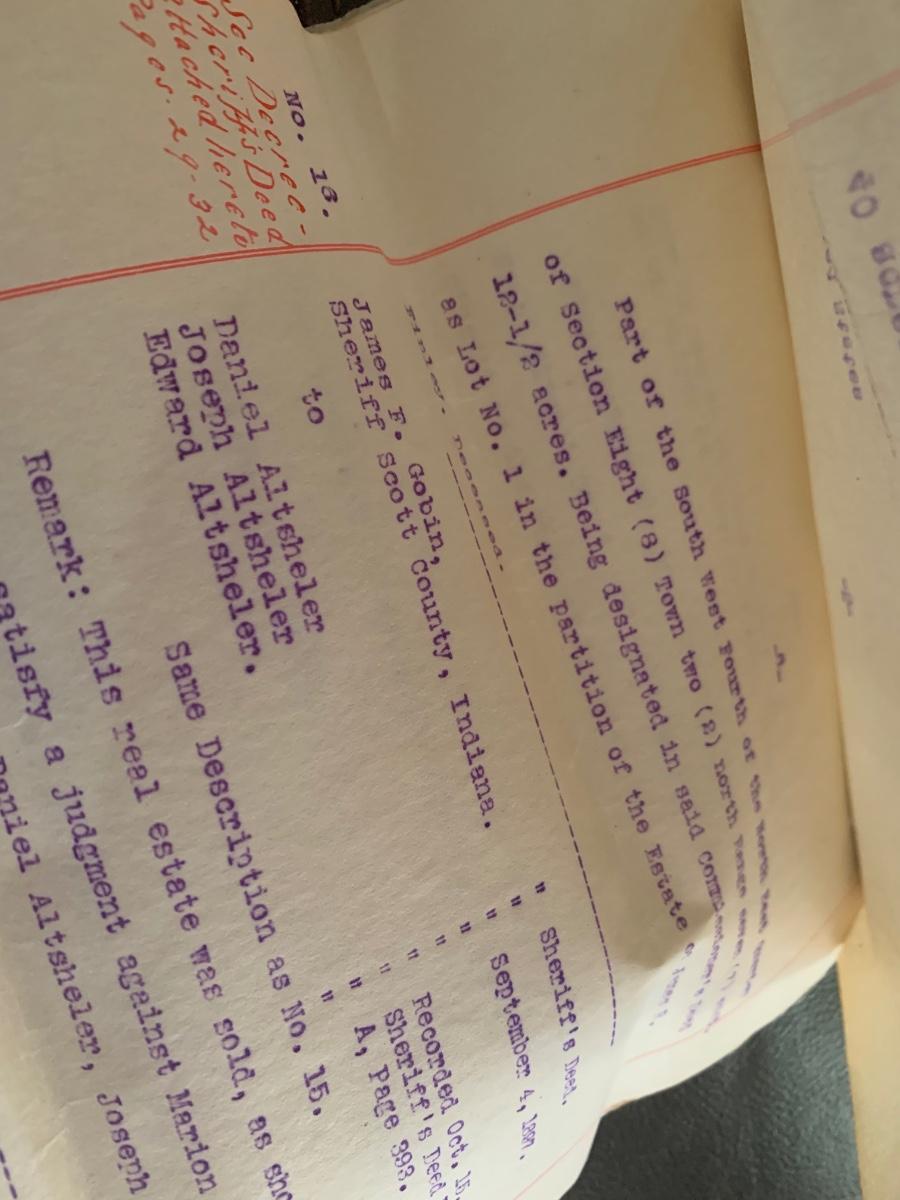 Part of the South West Fourth of the North East
of Section Eight (8) Town two (2) north Range
12-1/2 acres. Being designated in said Commissioner's
as Lot No. 1 in the partition of the Estate
Finley- Deceased.
No. 16.
See Decree -
Sheriff's Deed
attached hereto
Pages. 29-32
James F. Gobin, " Sheriff's Deed.
Sheriff Scott County, Indiana. "
" September 4,
"
to " Recorded Oct. 15,
" Sheriff's Deed
" A, Page 393.
Daniel Altsheler
Joseph Altsheler
Edward Altsheler.
Same Description as No. 15.
Remark: This real estate was sold, as
satisfy a judgment against Marion
Daniel Altsheler, Joseph
to